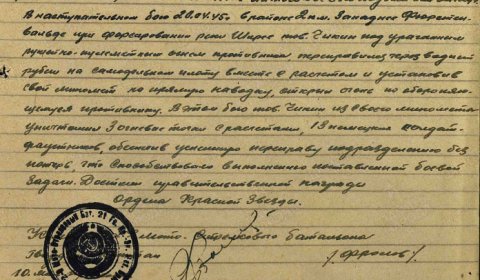 В наступательном бою 20.04.45г. в районе 2 км. Западнее Фюрстен-
вальде при форсировании реки Шпрее тов. Чикин под ураганным
ружейно-пулеметным огнем противника, переправившись через водный
рубеж на самодельном плоту вместе с расчетом и установив
свой миномет на прямую наводку, открыл огонь по обороня-
ющемуся противнику. В этом бою тов. Чикин из своего миномета
уничтожил 3 огневые точки с расчетами, 13 немецких солдат-
фаустников, обеспечив успешную переправу подразделению без
потерь, что способствовало выполнению поставленной боевой
задачи. Достоин правительственной награды
Ордена Красной Звезды.
Мото-Стрелкового батальона
/Фролов/
10.